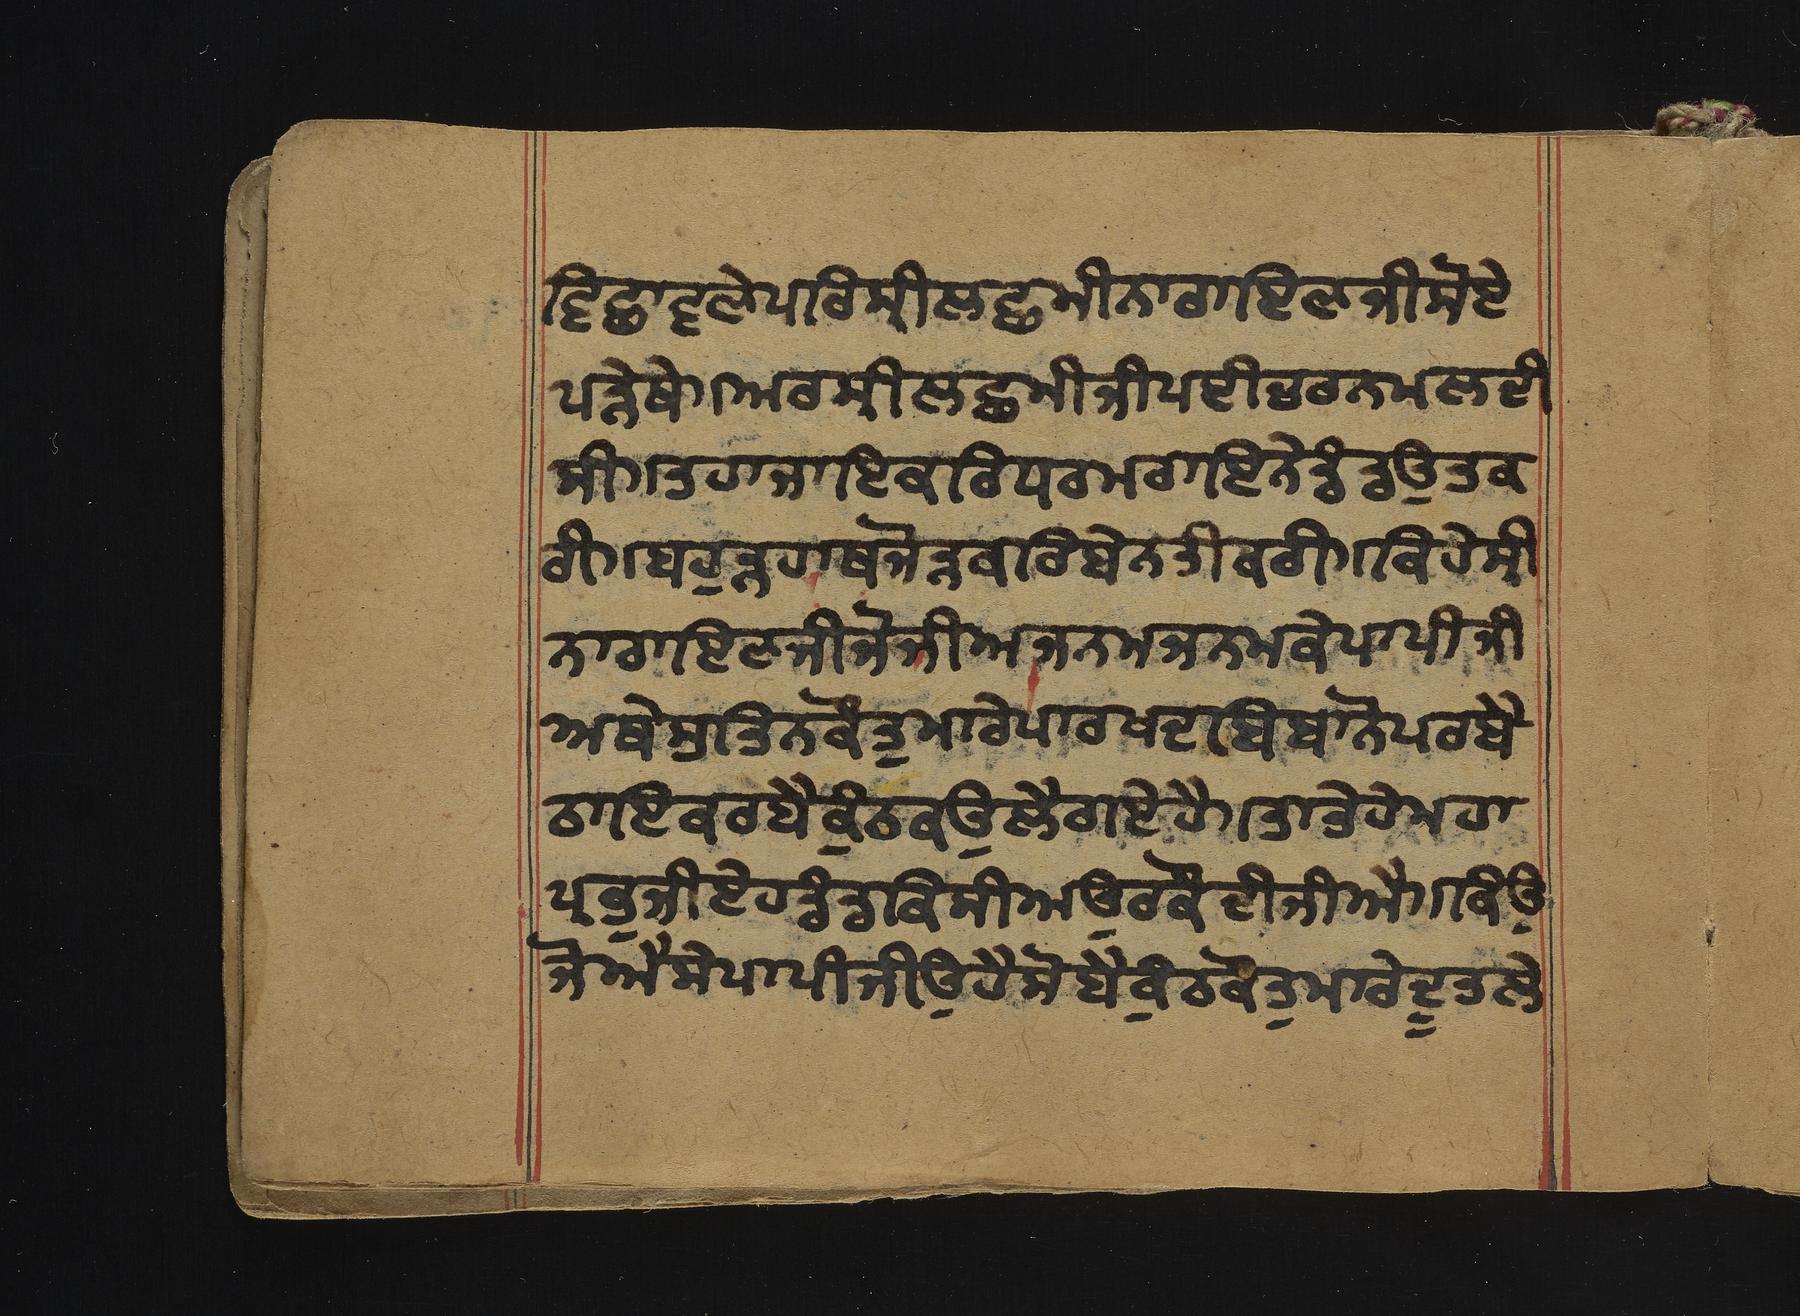 ਵਿਛਾਵਣੇਪਰਿਸ੍ਰੀਲਛਮੀਨਾਰਾਇਣਜੀਸੋਏ
ਪੜੇਥੇ॥ਅਰਸ੍ਰੀਲਛਮੀਜੀਪਈਚਰਨਮਲਦੀ
ਸੀ॥ਤਹਾਜਾਇਕਰਿਧਰਮਰਾਇਨੇਡੰਡਉਤਕ
ਰੀ॥ਬਹੁੜਹਾਥਜੋੜਕਰਿਬੇਨਤੀਕਰੀ॥ਕਿਹੇਸ੍ਰੀ
ਨਾਰਾਇਣਜੀਜੋਜੀਅਜਨਮਜਨਮਕੇਪਾਪੀਜੀ
ਅਥੇਸੁਤਿਨਕੌਤੁਮਾਰੇਪਾਰਖਦਬਿਬਾਨੋਪਰਬੈ
ਠਾਇਕਰਬੈਕੁੰਠਕਉਲੈਗਏਹੈ॥ਤਾਤੇਹੇਮਹਾ
ਪ੍ਰਭੁਜੀਏਹਡੰਡਕਿਸੀਅਉਰਕੌਦੀਜੀਐ॥ਕਿਉ
ਜੋਐਸੇਪਾਪੀਜੀਉਹੈਸੋਬੈਕੁੰਠਕੋਤੁਮਾਰੇਦੂਤਲੇ